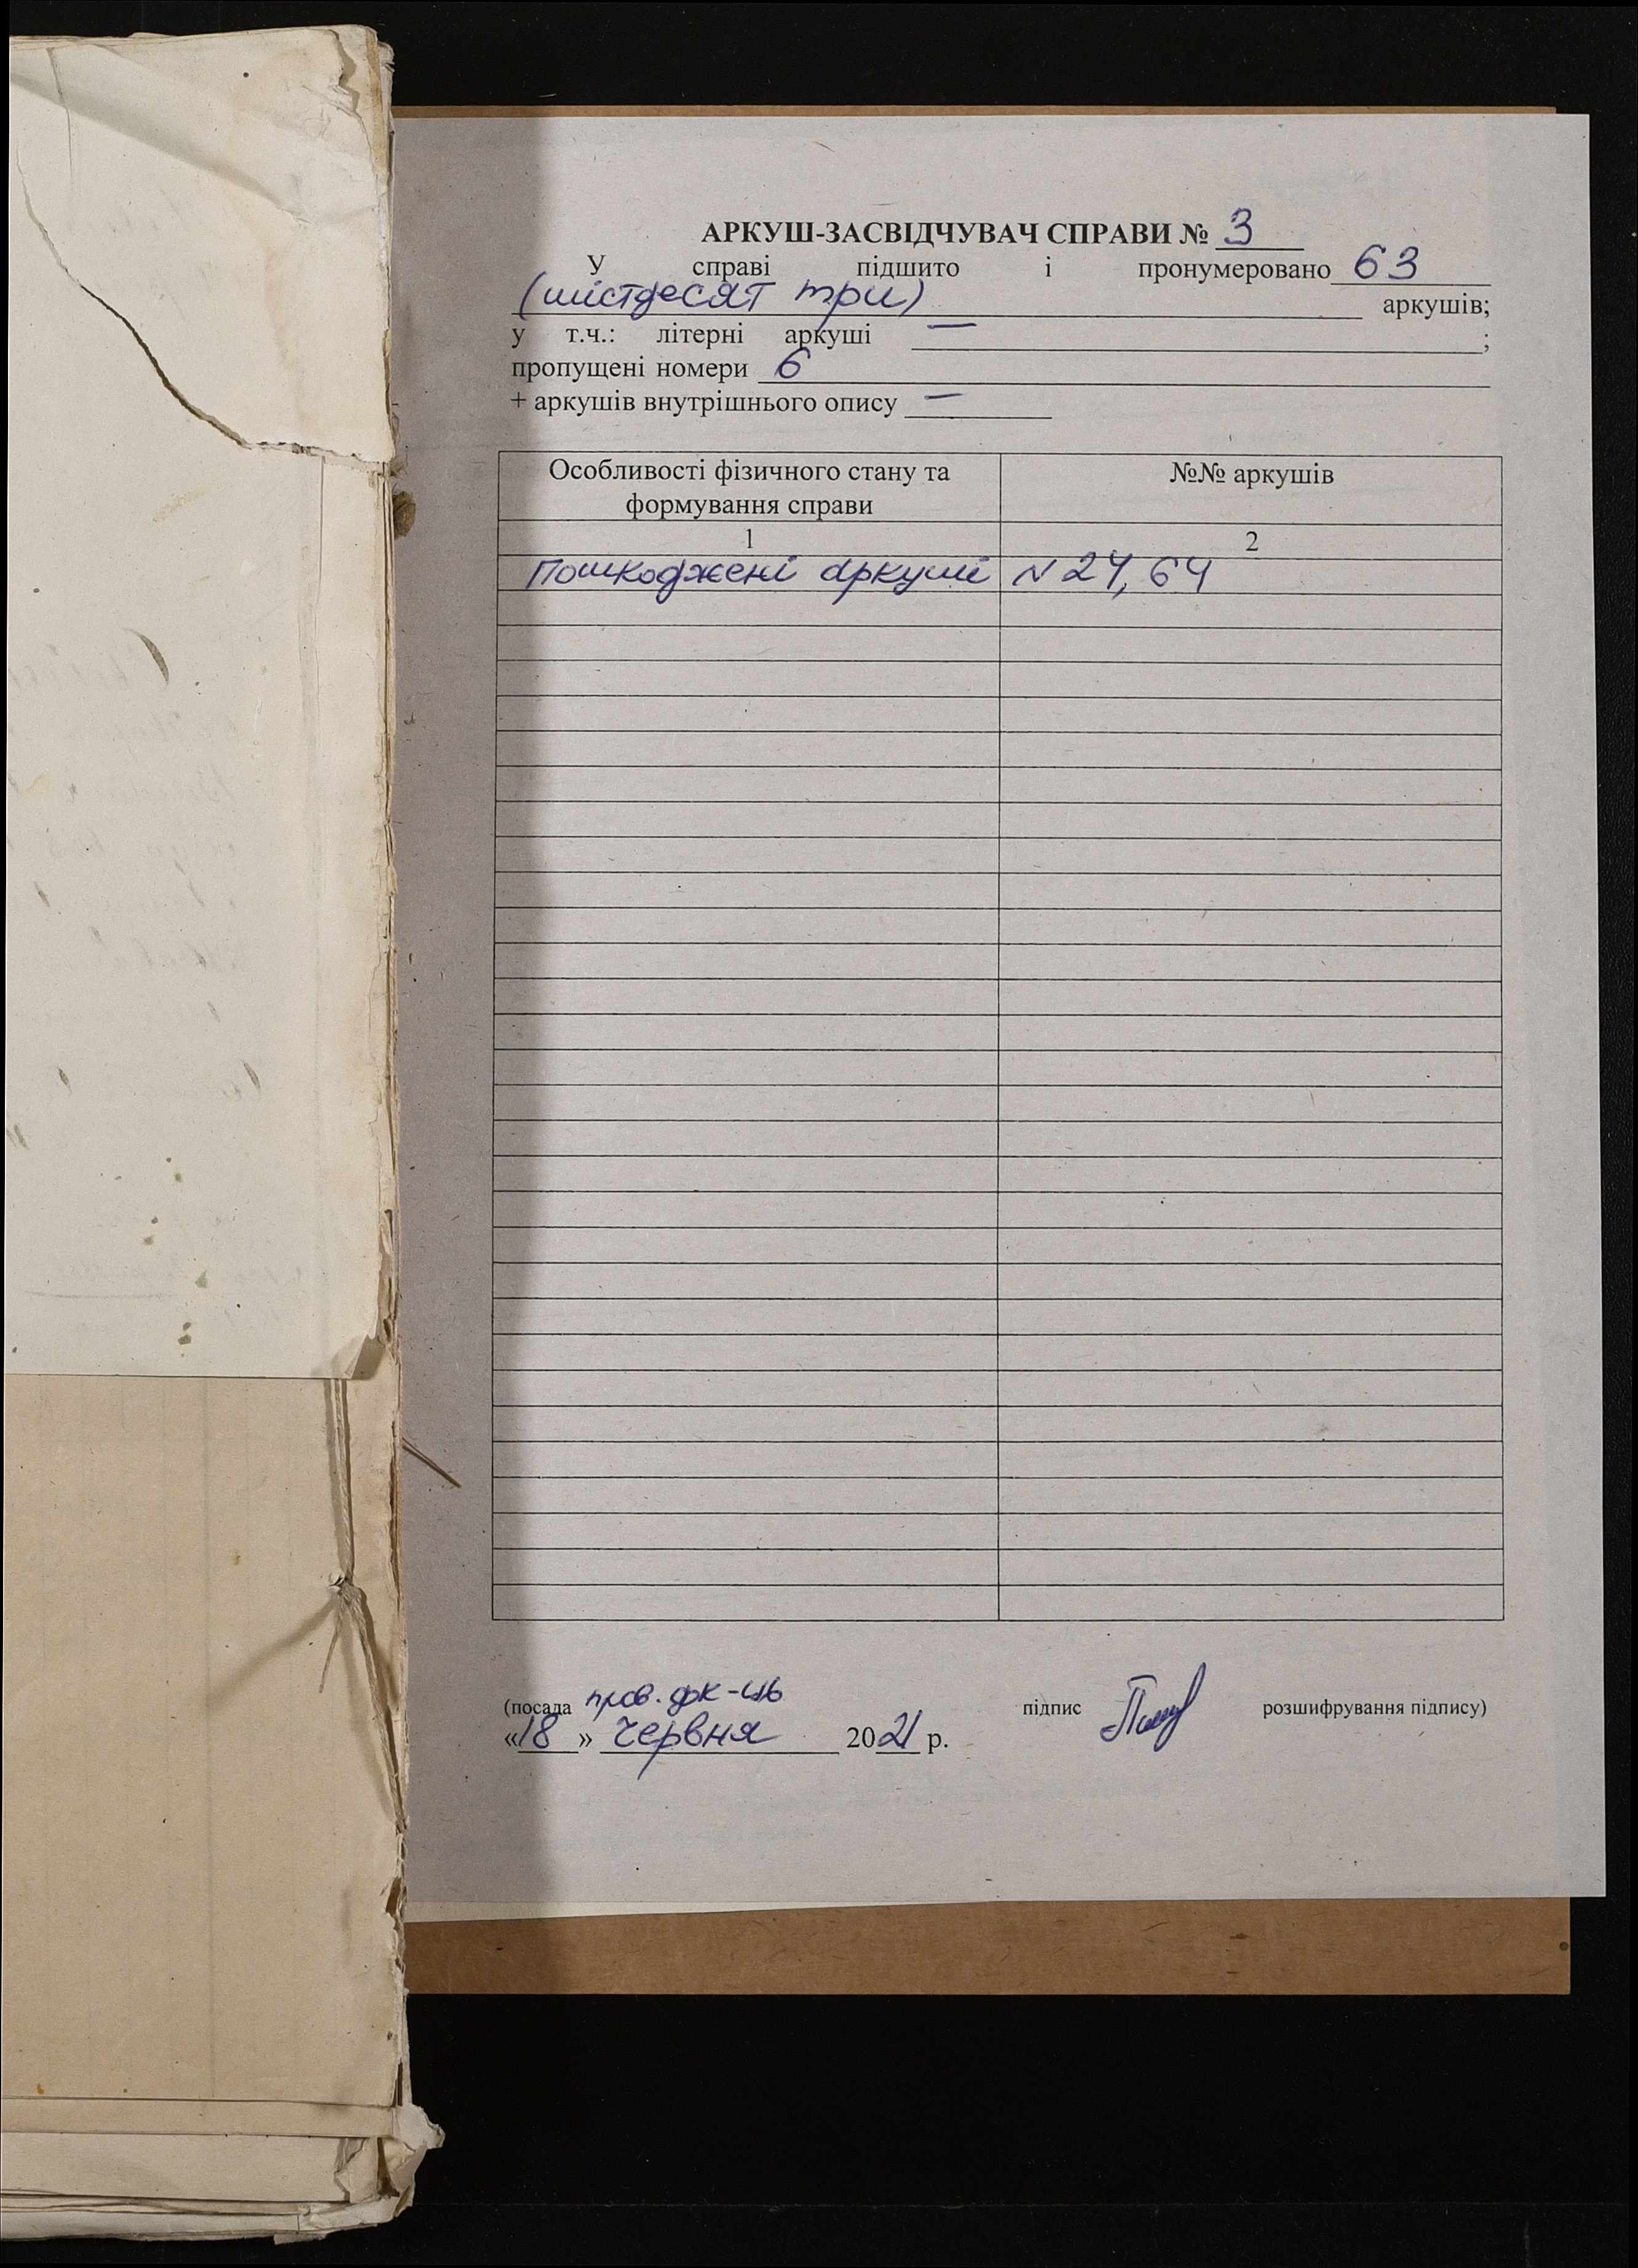 АРКУШ-ЗАСВІДЧУВАЧ СПРАВИ № 3
У справі підшито і пронумеровано 63
(шістдесят три) аркушів;
у т.ч.: літерні аркуші — ;
пропущені номери 6
+ аркушів внутрішнього опису —
Особливості фізичного стану та формування справи №№ аркушів
1 2
Пошкоджені аркуші N 24, 64
(посада пров. док-ць підпис розшифрування підпису)
«18» червня 2021 р.